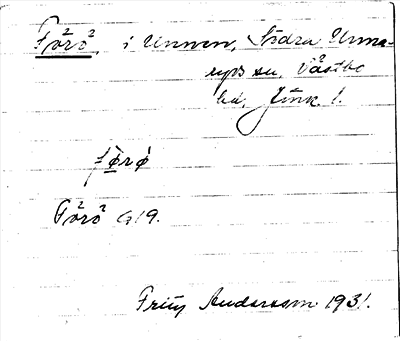 Förö, i Unnen, Södra Unna-
ryds sn, Västbo
hd, Jönk. l.
førø
Förö G19.
Fritz Andersson 1931.